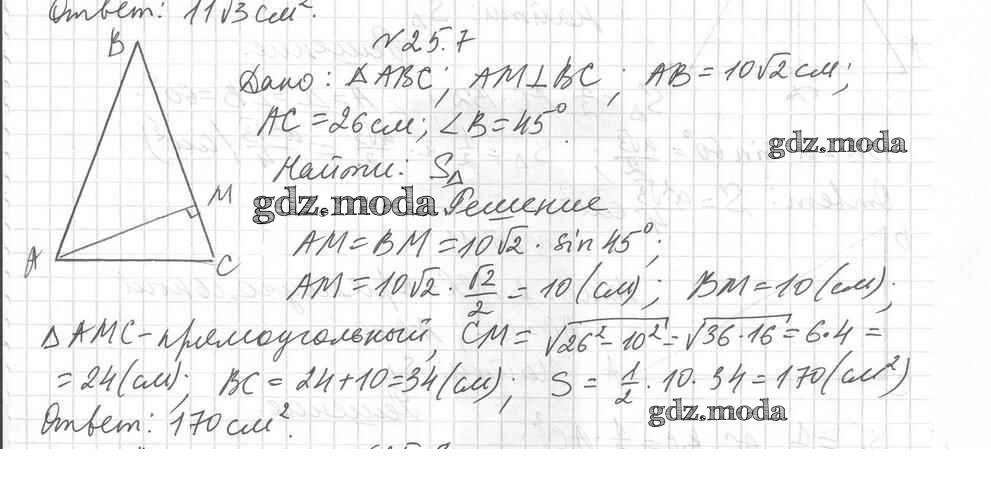 Ответ: 11√3 см².
№25.7
B
Дано: △ABC; AM⊥BC; AB = 10√2 см;
AC = 26 см; ∠B = 45°
gdz.moda
Найти: S△
M
gdz.moda Решение
AM = BM = 10√2 · sin 45°;
A
C
AM = 10√2 · √2/2 = 10 (см); BM = 10 (см);
△AMC - прямоугольный, CM = √26² - 10² = √36·16 = 6·4 =
= 24 (см); BC = 24 + 10 = 34 (см); S = 1/2 · 10 · 34 = 170 (см²)
gdz.moda
Ответ: 170 см².